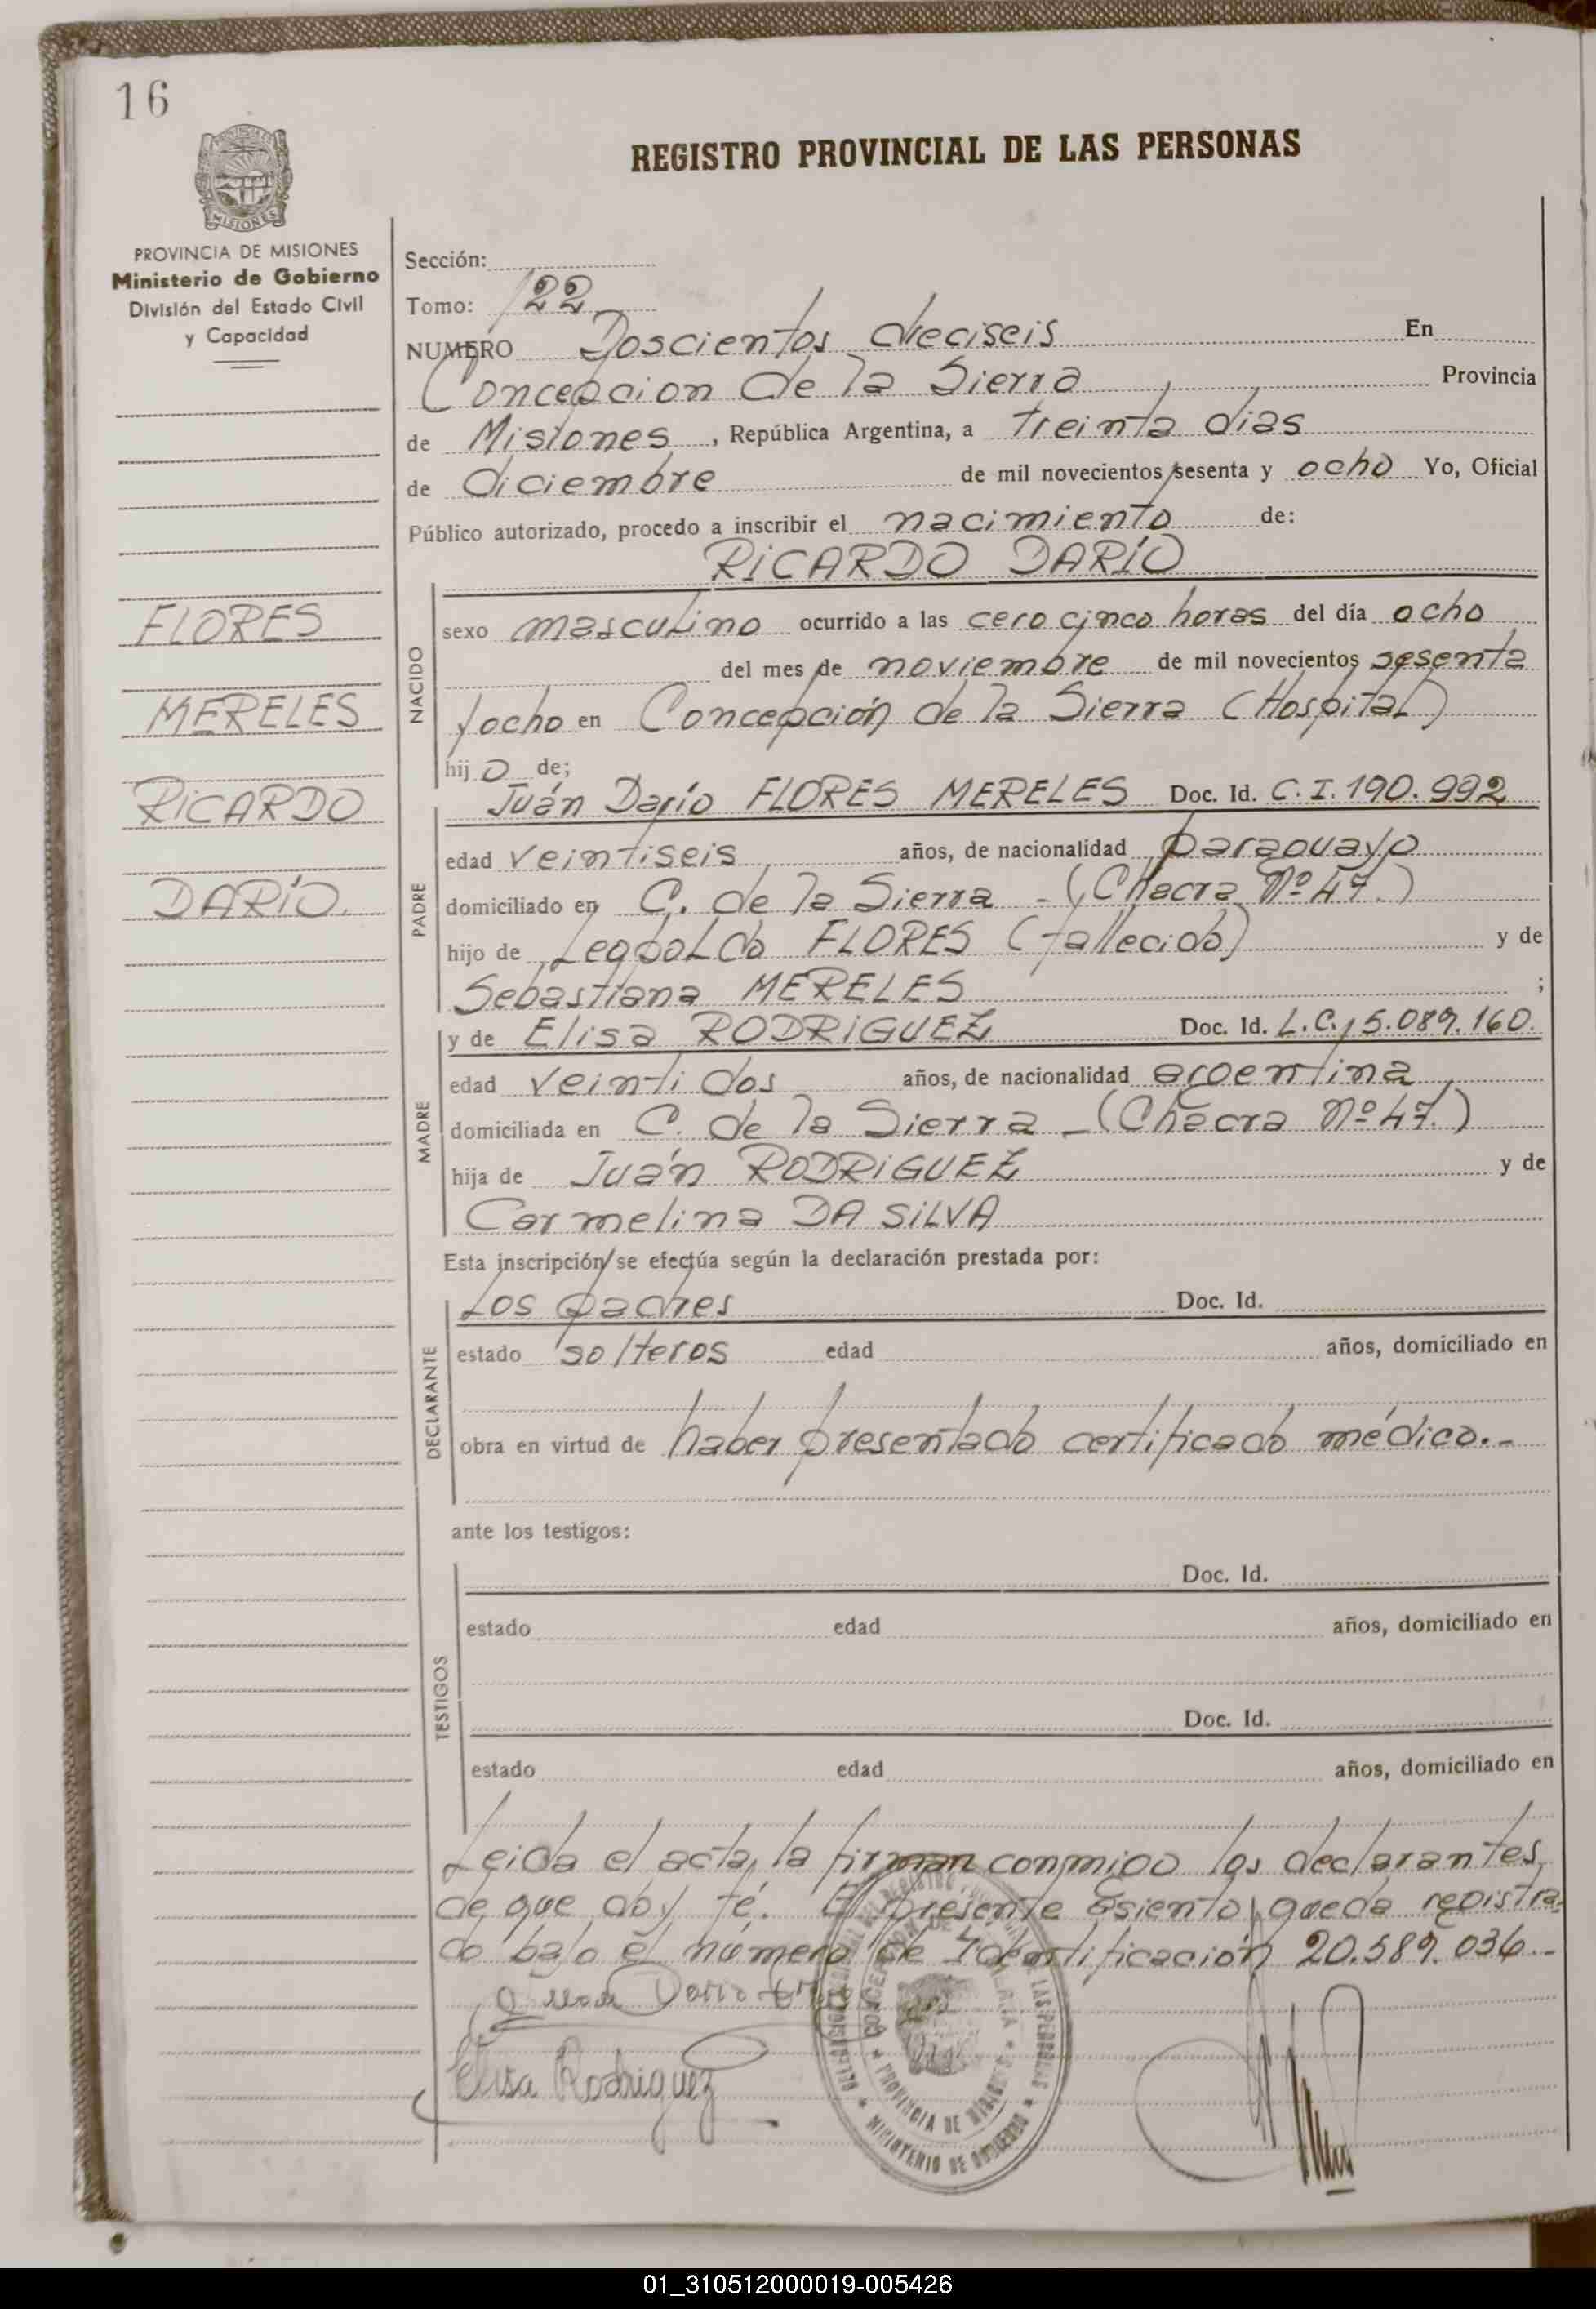 16
PROVINCIA DE MISIONES
Ministerio de Gobierno
División del Estado Civil
y Capacidad
FLORES
MERELES
RICARDO
DARÍO.
REGISTRO PROVINCIAL DE LAS PERSONAS
Sección:
Tomo: 1º/22
NUMERO Doscientos dieciseis En
Concepcion de la Sierra Provincia
de Misiones, República Argentina, a treinta dias
de diciembre de mil novecientos sesenta y ocho Yo, Oficial
Público autorizado, procedo a inscribir el nacimiento de:
RICARDO DARÍO
NACIDO
sexo masculino ocurrido a las cero cinco horas del día ocho
del mes de noviembre de mil novecientos sesenta
y ocho en Concepción de la Sierra (Hospital)
hijo de;
PADRE
Juán Darío FLORES MERELES Doc. Id. C.I. 190.992
edad veintiseis años, de nacionalidad paraguayo
domiciliado en C. de la Sierra - (Chacra Nº 47.)
hijo de Leopoldo FLORES (fallecido) y de
Sebastiana MERELES ;
MADRE
y de Elisa RODRIGUEZ Doc. Id. L.C. 5.089.160.
edad veinti dos años, de nacionalidad argentina
domiciliada en C. de la Sierra - (Chacra Nº 47.)
hija de Juán RODRIGUEZ y de
Carmelina DA SILVA
Esta inscripción se efectúa según la declaración prestada por:
DECLARANTE
Los padres Doc. Id.
estado solteros edad años, domiciliado en
obra en virtud de haber presentado certificado médico.-
ante los testigos:
TESTIGOS
Doc. Id.
estado edad años, domiciliado en
Doc. Id.
estado edad años, domiciliado en
Leida el acta, la firman conmigo los declarantes
de que doy fé. El presente asiento queda registra-
do bajo el número de Identificación 20.589.036.-
Juan Dario
Elisa Rodriguez
PROVINCIA DE MISIONES
MINISTERIO DE GOBIERNO
01_310512000019-005426